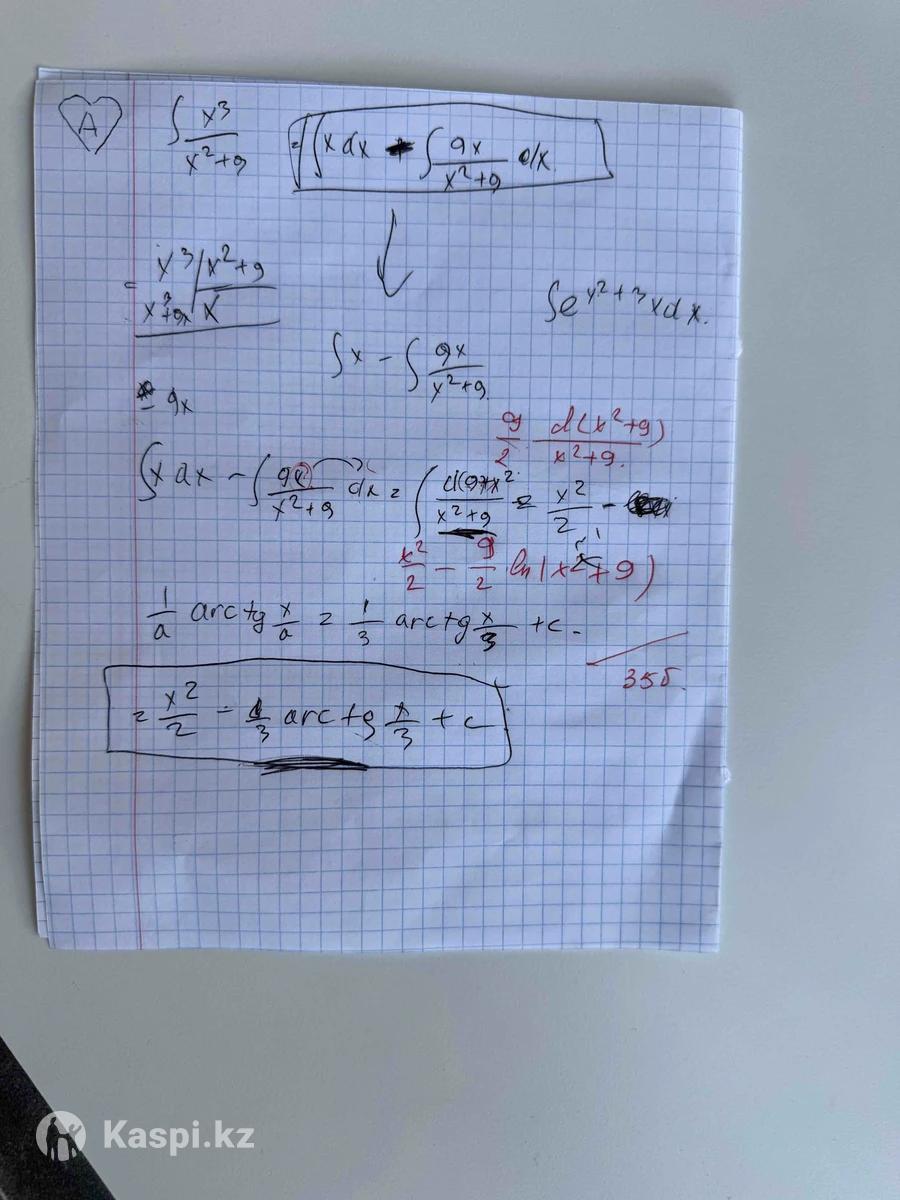 A
∫ x³/(x²+9) = ∫ x dx - ∫ 9x/(x²+9) dx
= x³ | x²+9
x³+9x | x
- 9x
∫ e^(x²+3) x dx.
∫ x - ∫ 9x/(x²+9)
9/2 d(x²+9)/(x²+9).
∫ x dx - ∫ 9x/(x²+9) dx = ∫ /(x²+9) = x²/2 -
x²/2 - 9/2 ln(x²+9)
1/a arctg x/a = 1/3 arctg x/3 + c.
35б.
= x²/2 - 1/3 arctg x/3 + c
Kaspi.kz